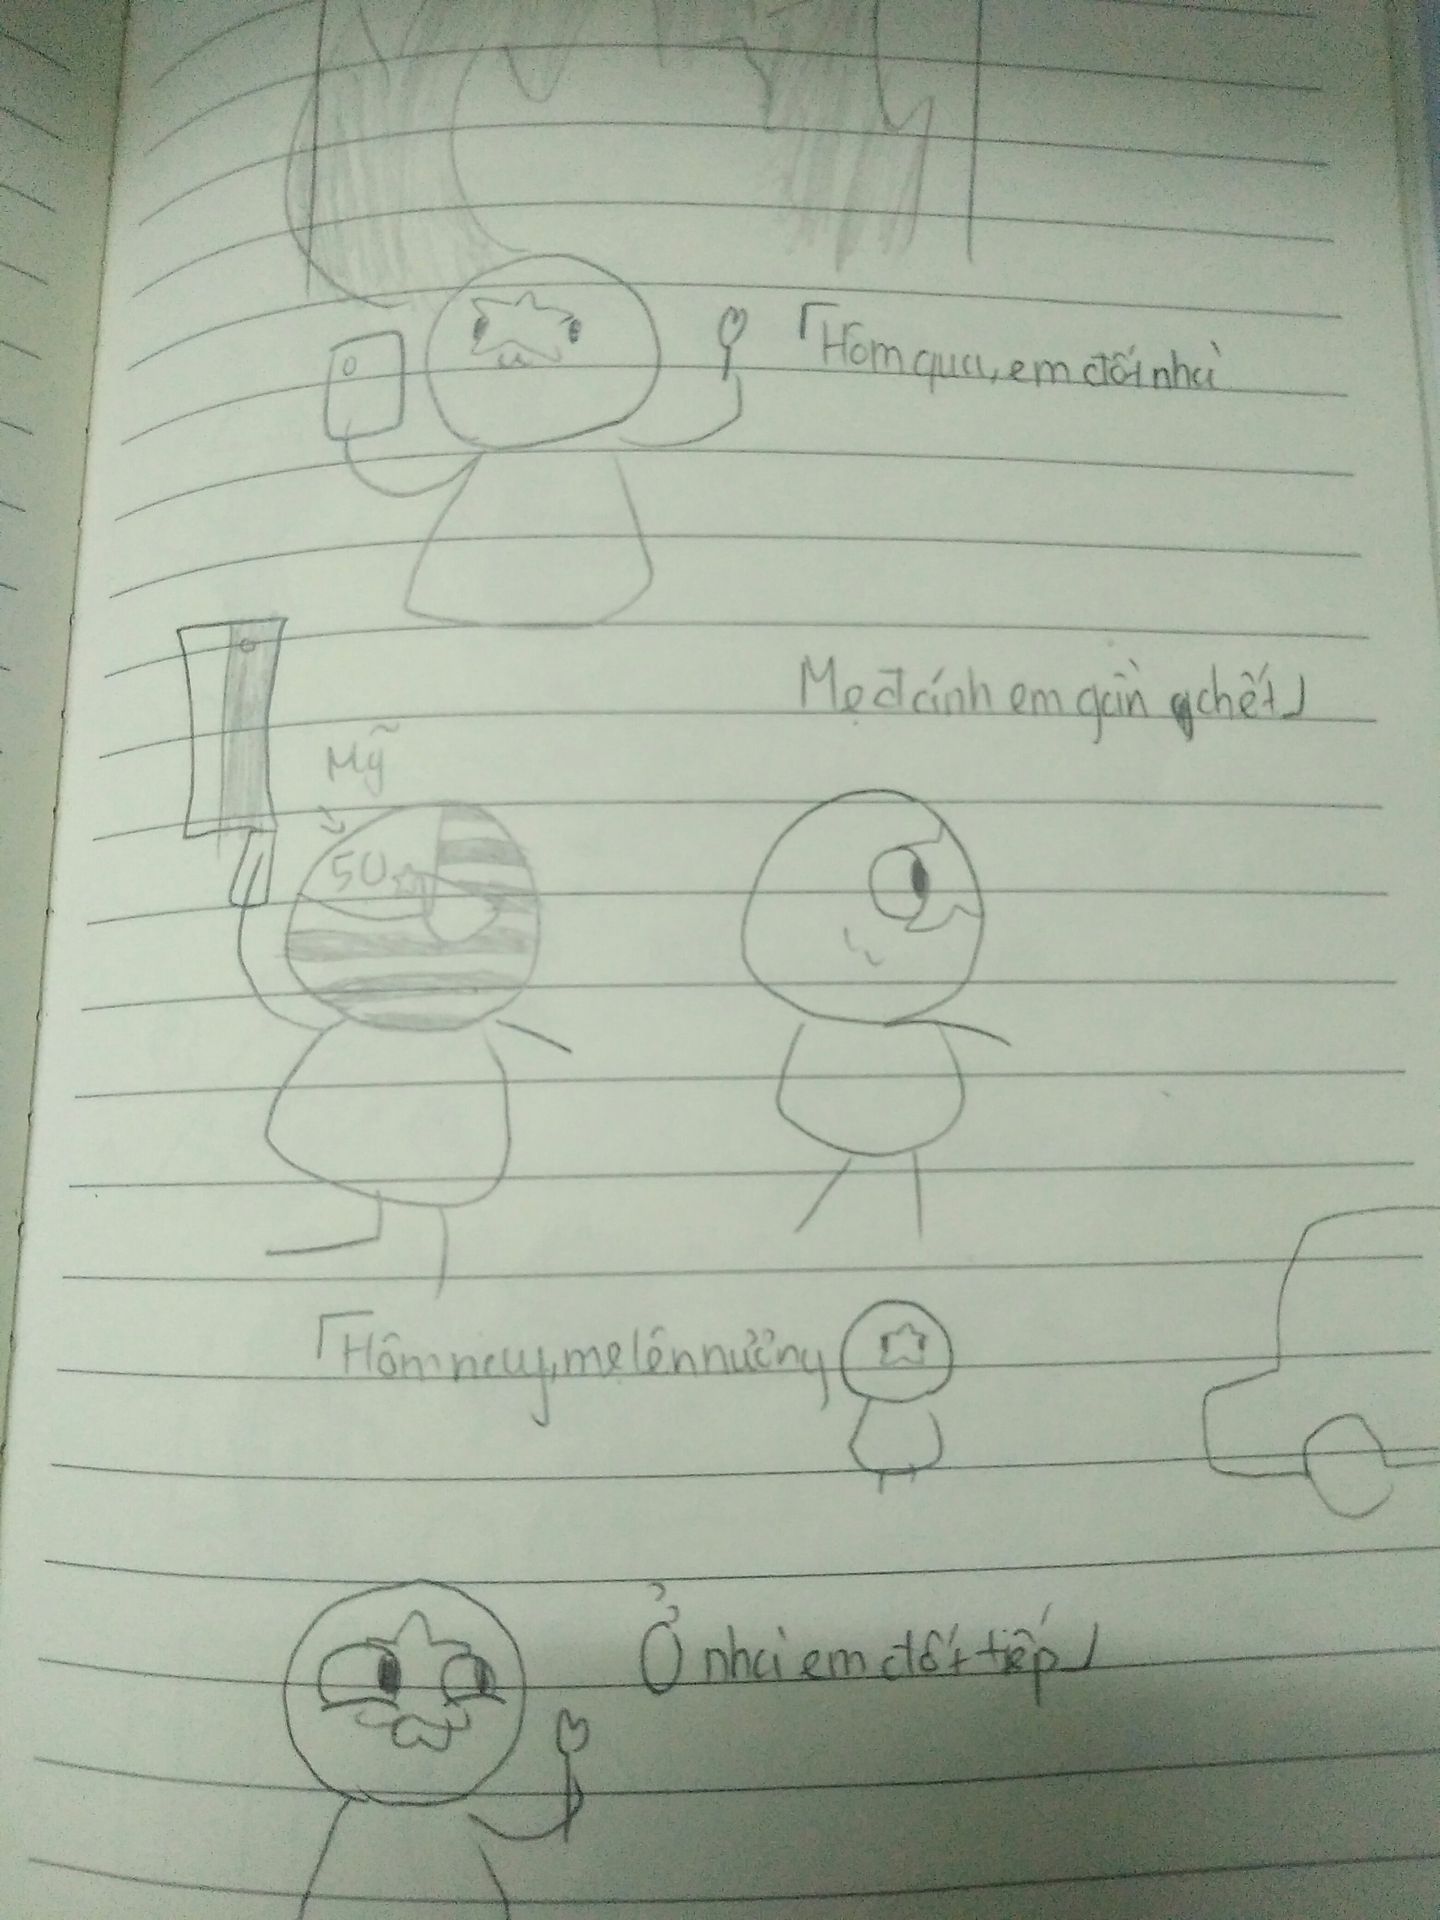 「Hôm qua, em đốt nhà
Mẹ đánh em gần chết」
Mỹ
50
「Hôm nay, mẹ lên nương
Ở nhà em đốt tiếp」